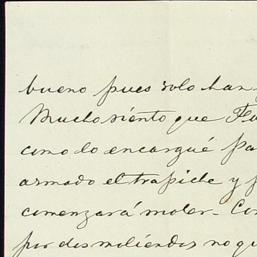 bueno pues solo han
Mucho siento que
como lo encargué pa
armado el trapiche y
comenzará moler - Con
por dos moliendas no qu